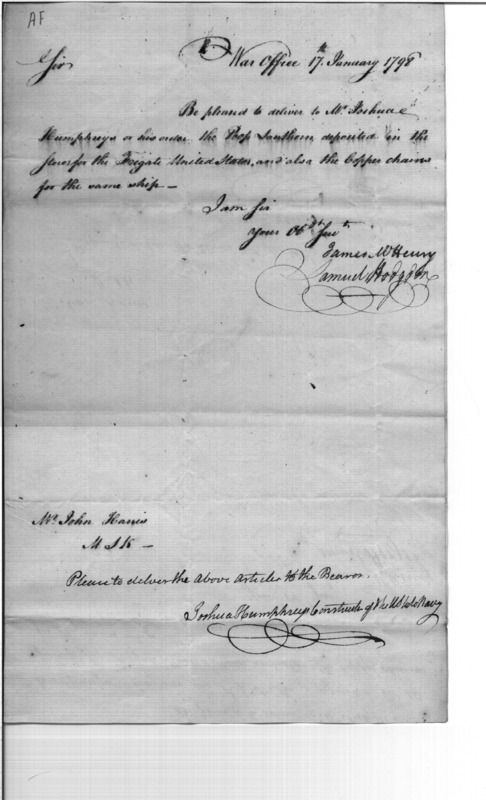 AF
War Office 17th January 1798
Sir
Be pleased to deliver to Mr. Joshua
Humphreys or his order the Poop Lanthorn deposited in the
Stores for the Frigate United States, and also the Copper chains
for the same ship —
I am Sir
your Obdt. Servt.
James McHenry
Samuel Hodgdon
Mr. John Harris
M S K —
Please to deliver the Above Articles to the Bearer.
Joshua Humphreys Constructor of the US Navy